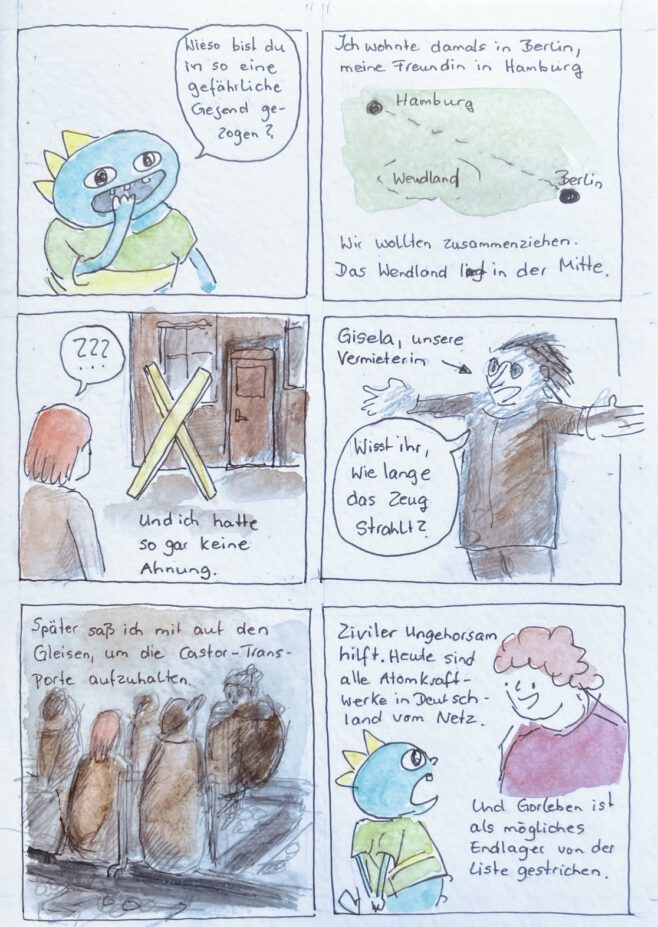 Wieso bist du
in so eine
gefährliche
Gegend ge-
zogen?
Ich wohnte damals in Berlin,
meine Freundin in Hamburg
Hamburg
Wendland
Berlin
Wir wollten zusammenziehen.
Das Wendland liegt in der Mitte.
???
...
Und ich hatte
so gar keine
Ahnung.
Gisela, unsere
Vermieterin
Wisst ihr,
wie lange
das Zeug
strahlt?
Später saß ich mit auf den
Gleisen, um die Castor-Trans-
porte aufzuhalten.
Ziviler Ungehorsam
hilft. Heute sind
alle Atomkraft-
werke in Deutsch-
land vom Netz.
Und Gorleben ist
als mögliches
Endlager von der
Liste gestrichen.